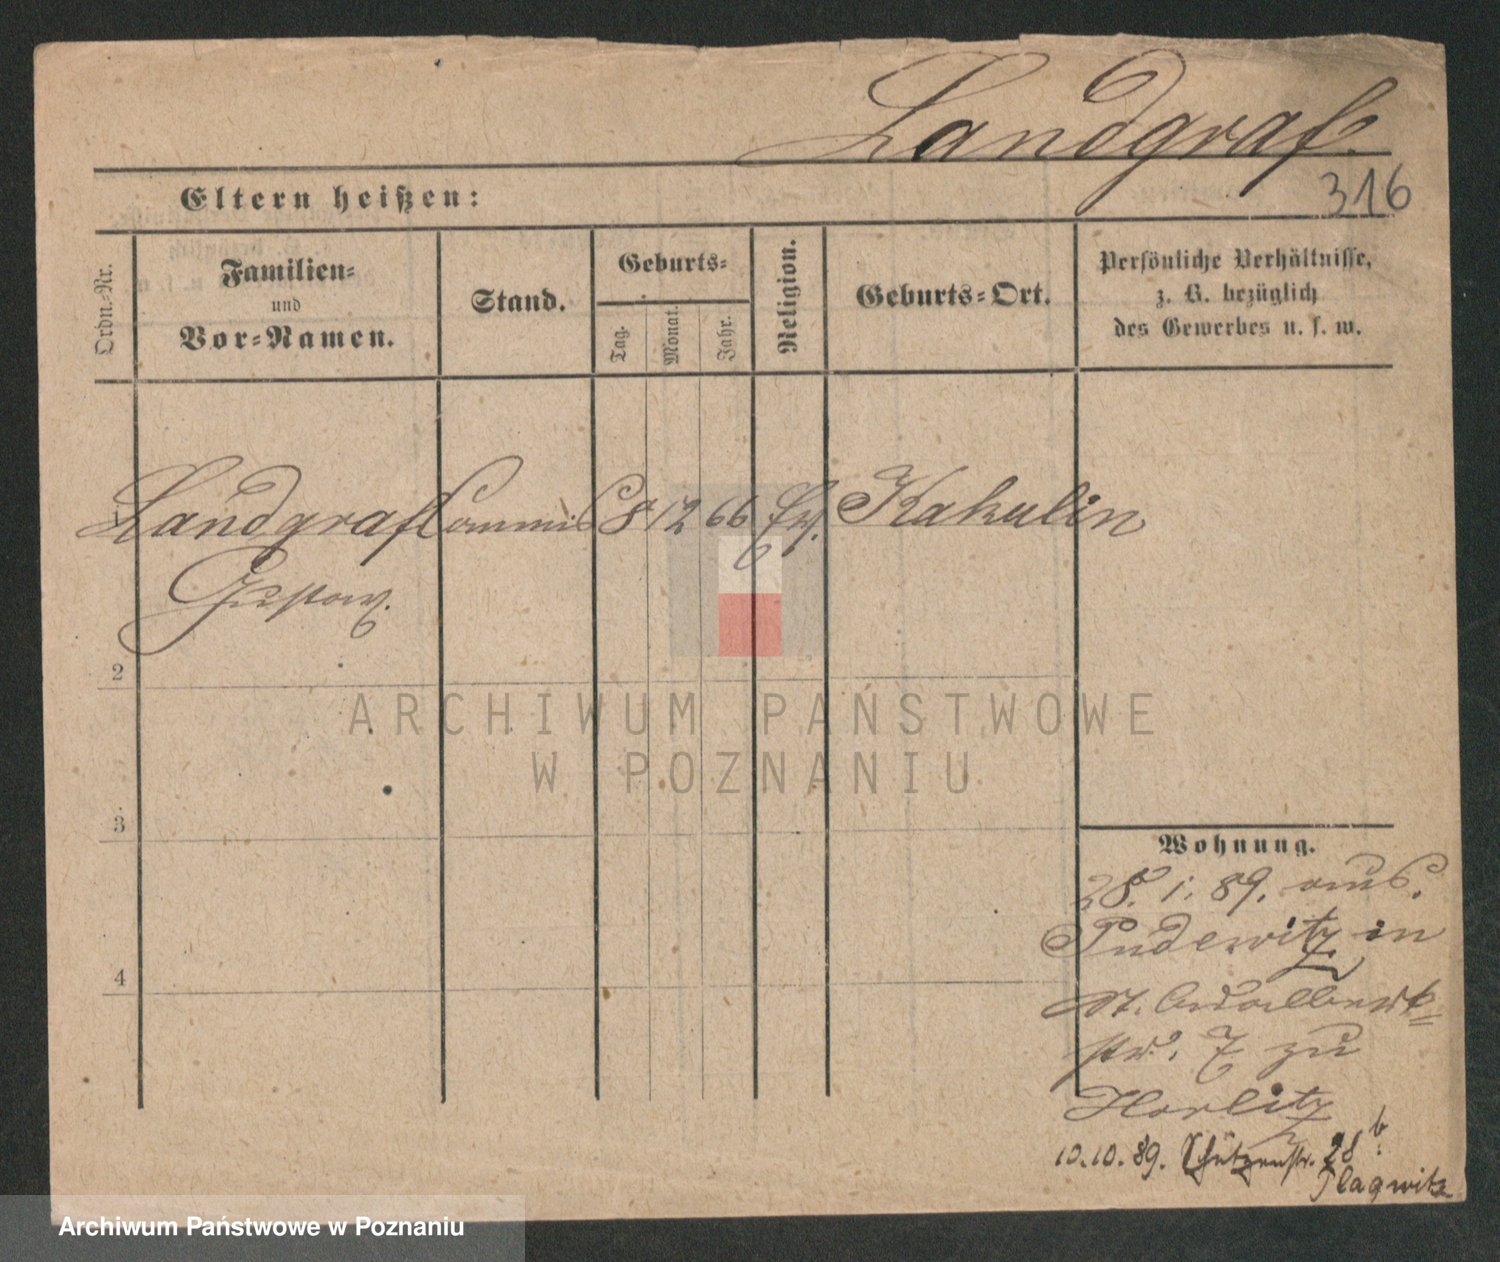 Landgraf.
316
Eltern heißen:
Ordn.-Nr.
Familien-
und
Vor-Namen.
Stand.
Geburts-
Tag.
Monat.
Jahr.
Religion.
Geburts-Ort.
Persönliche Verhältnisse,
z. B. bezüglich
des Gewerbes u. s. w.
Landgraf Commis 8 12 66 Ev. Kakulin
Gustav.
2
3
4
ARCHIWUM PAŃSTWOWE
W POZNANIU
Wohnung.
28. 1. 89. aus
Pudewitz in
St. Adalbert-
str. 7 zu
Horlitz
10.10.89. Schützenstr. 28 b.
Plagwitz
Archiwum Państwowe w Poznaniu